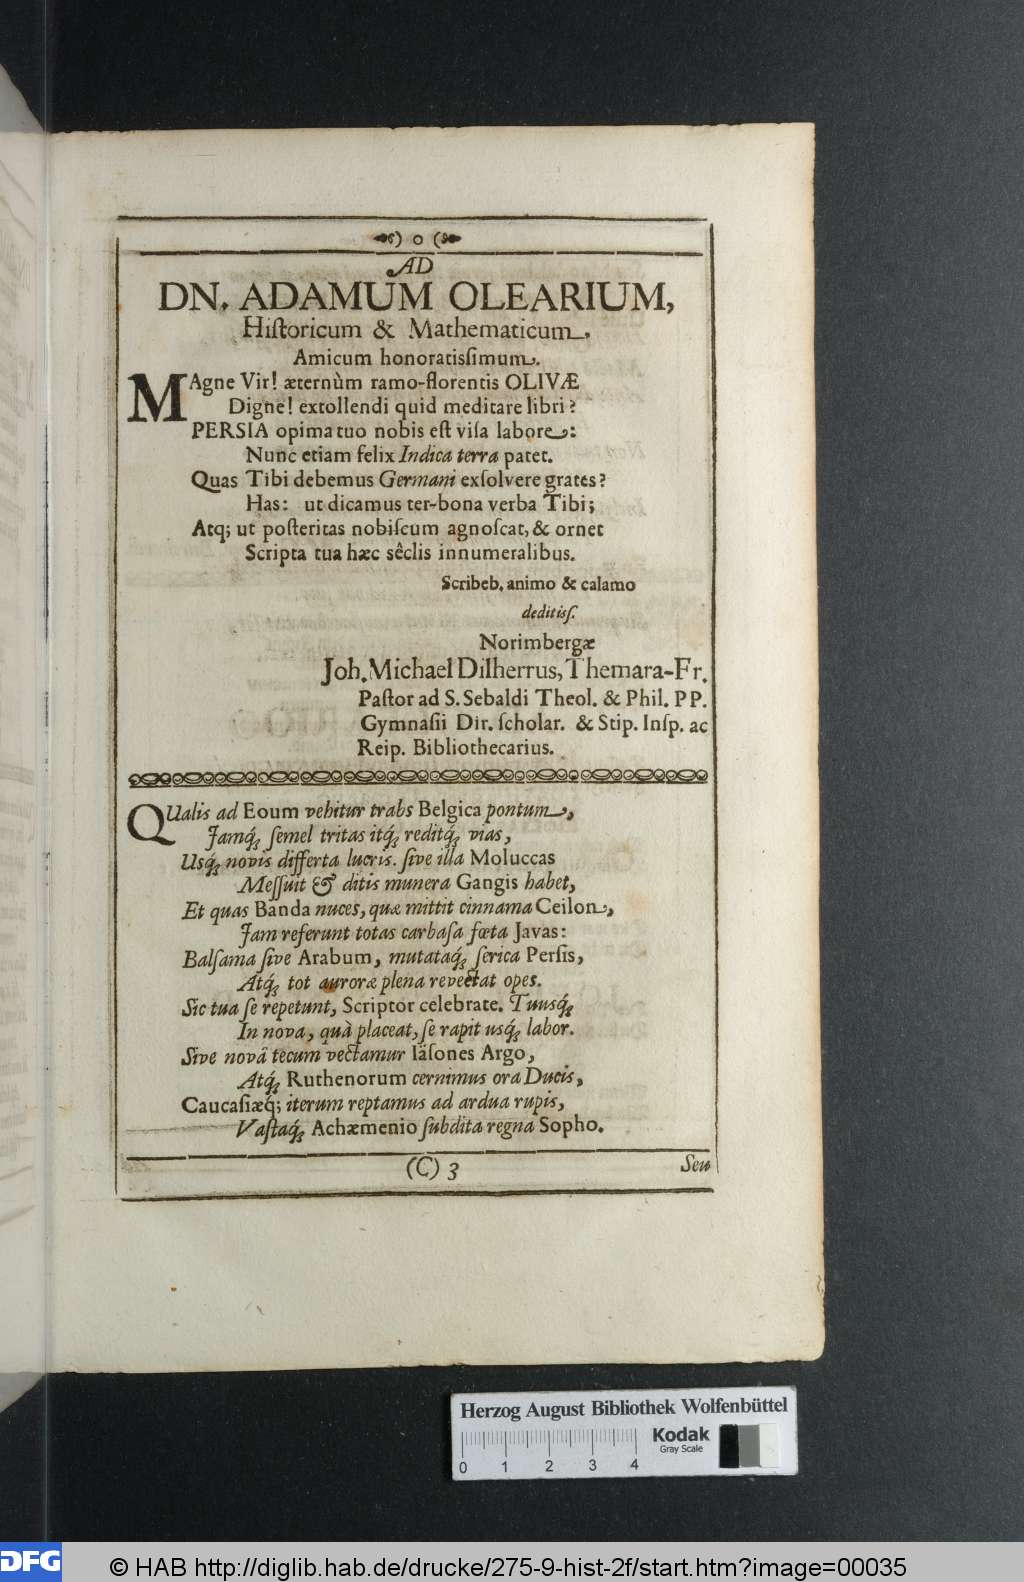 ) o (
AD
DN. ADAMUM OLEARIUM,
Hiſtoricum & Mathematicum,
Amicum honoratisſimum.
MAgne Vir! æternùm ramo-florentis OLIVÆ
Digne! extollendi quid meditare libri?
PERSIA opima tuo nobis eſt viſa labore:
Nunc etiam felix Indica terra patet.
Quas Tibi debemus Germani exſolvere grates?
Has: ut dicamus ter-bona verba Tibi;
Atq; ut poſteritas nobiſcum agnoſcat, & ornet
Scripta tua hæc sêclis innumeralibus.
Scribeb. animo & calamo
deditisſ.
Norimbergæ
Joh. Michael Dilherrus, Themara-Fr.
Paſtor ad S. Sebaldi Theol. & Phil. PP.
Gymnaſii Dir. ſcholar. & Stip. Inſp. ac
Reip. Bibliothecarius.
QUalis ad Eoum vehitur trabs Belgica pontum,
Jamq́; ſemel tritas itq́; reditq́; vias,
Usq́; novis differta lucris. ſive illa Moluccas
Meſſuit & ditis munera Gangis habet,
Et quas Banda nuces, quæ mittit cinnama Ceilon,
Jam referunt totas carbaſa fœta Javas:
Balſama ſive Arabum, mutataq́; ſerica Perſis,
Atq́; tot auroræ plena revectat opes.
Sic tua ſe repetunt, Scriptor celebrate. Tuusq́;
In nova, quà placeat, ſe rapit usq́; labor.
Sive novâ tecum vectamur Iäſones Argo,
Atq́; Ruthenorum cernimus ora Ducis,
Caucaſiæq́; iterum reptamus ad ardua rupis,
Vaſtaq́; Achæmenio ſubdita regna Sopho.
(C) 3
Seu
Herzog August Bibliothek Wolfenbüttel
Kodak
Gray Scale
0 1 2 3 4
DFG
© HAB http://diglib.hab.de/drucke/275-9-hist-2f/start.htm?image=00035